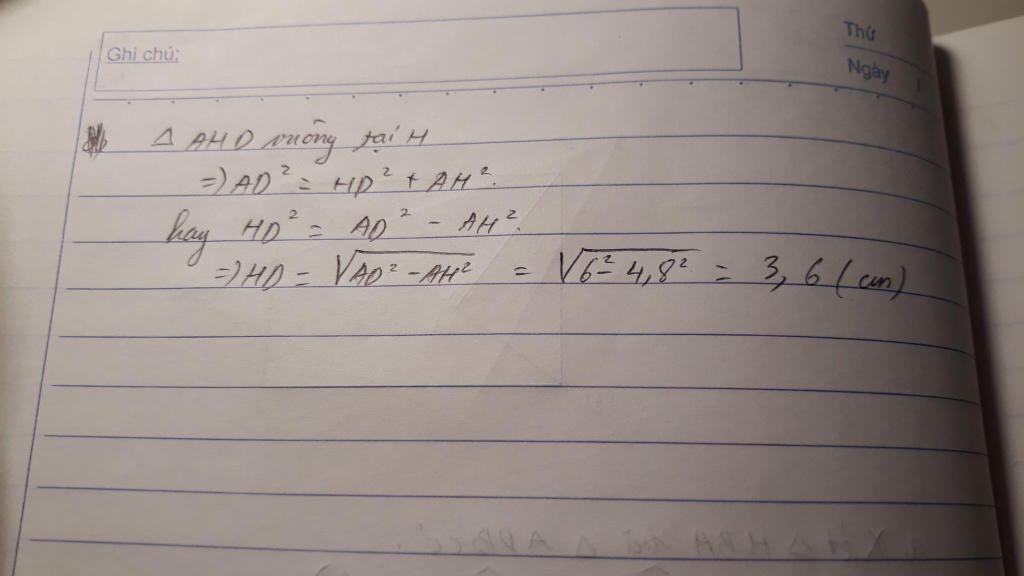 Ghi chú:
Thứ
Ngày
Δ AHD vuông tại H
=> AD² = HD² + AH².
hay HD² = AD² - AH².
=> HD = √AD² - AH² = √6² - 4,8² = 3,6 (cm)